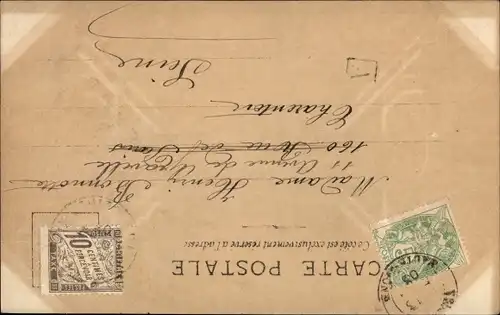 CARTE POSTALE
Ce côté est exclusivement réservé à l'adresse
Madame Henry Bonnotte
11 Avenue de Gravelle
160 Rue de Paris
Charenton
Seine
10
CENTIMES
A PERCEVOIR